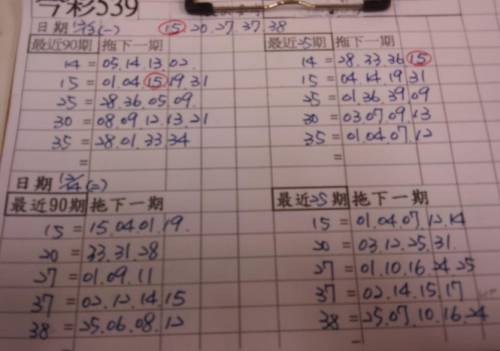 今彩539
日期 12/13(一) 15 20 27 37 38
最近90期 拖下一期 最近25期 拖下一期
14 = 05.14.13.02 14 = 28.33.36.15
15 = 01.04.15.19.31 15 = 04.14.19.31
25 = 28.36.05.09 25 = 01.36.39.09
30 = 08.09.12.13.21 30 = 03.07.09.13
35 = 28.01.33.34 35 = 01.04.07.12
= =
日期 12/14(二)
最近90期 拖下一期 最近25期 拖下一期
15 = 15.04.01.19. 15 = 01.04.07.12.14
20 = 33.31.28 20 = 03.12.25.31.
27 = 01.09.11 27 = 01.10.16.24.25
37 = 02.12.14.15 37 = 02.14.15.17
38 = 25.06.08.12 38 = 25.07.10.16.24
=